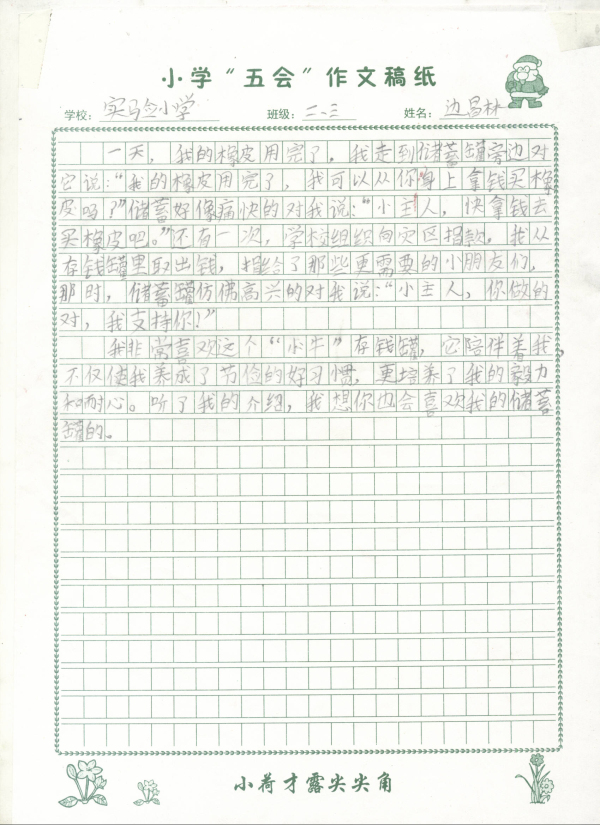 小学“五会”作文稿纸
学校：实验小学 班级：二、三 姓名：边昌林
一天，我的橡皮用完了，我走到储蓄罐旁边对
它说：“我的橡皮用完了，我可以从你身上拿钱买橡
皮吗？”储蓄好像痛快的对我说：“小主人，快拿钱去
买橡皮吧。”还有一次，学校组织向灾区捐款，我从
存钱罐里取出钱，捐给了那些更需要的小朋友们，
那时，储蓄罐仿佛高兴的对我说：“小主人，你做的
对，我支持你！”
我非常喜欢这个“小牛”存钱罐，它陪伴着我，
不仅使我养成了节俭的好习惯，更培养了我的毅力
和耐心。听了我的介绍，我想你也会喜欢我的储蓄
罐的。
小荷才露尖尖角